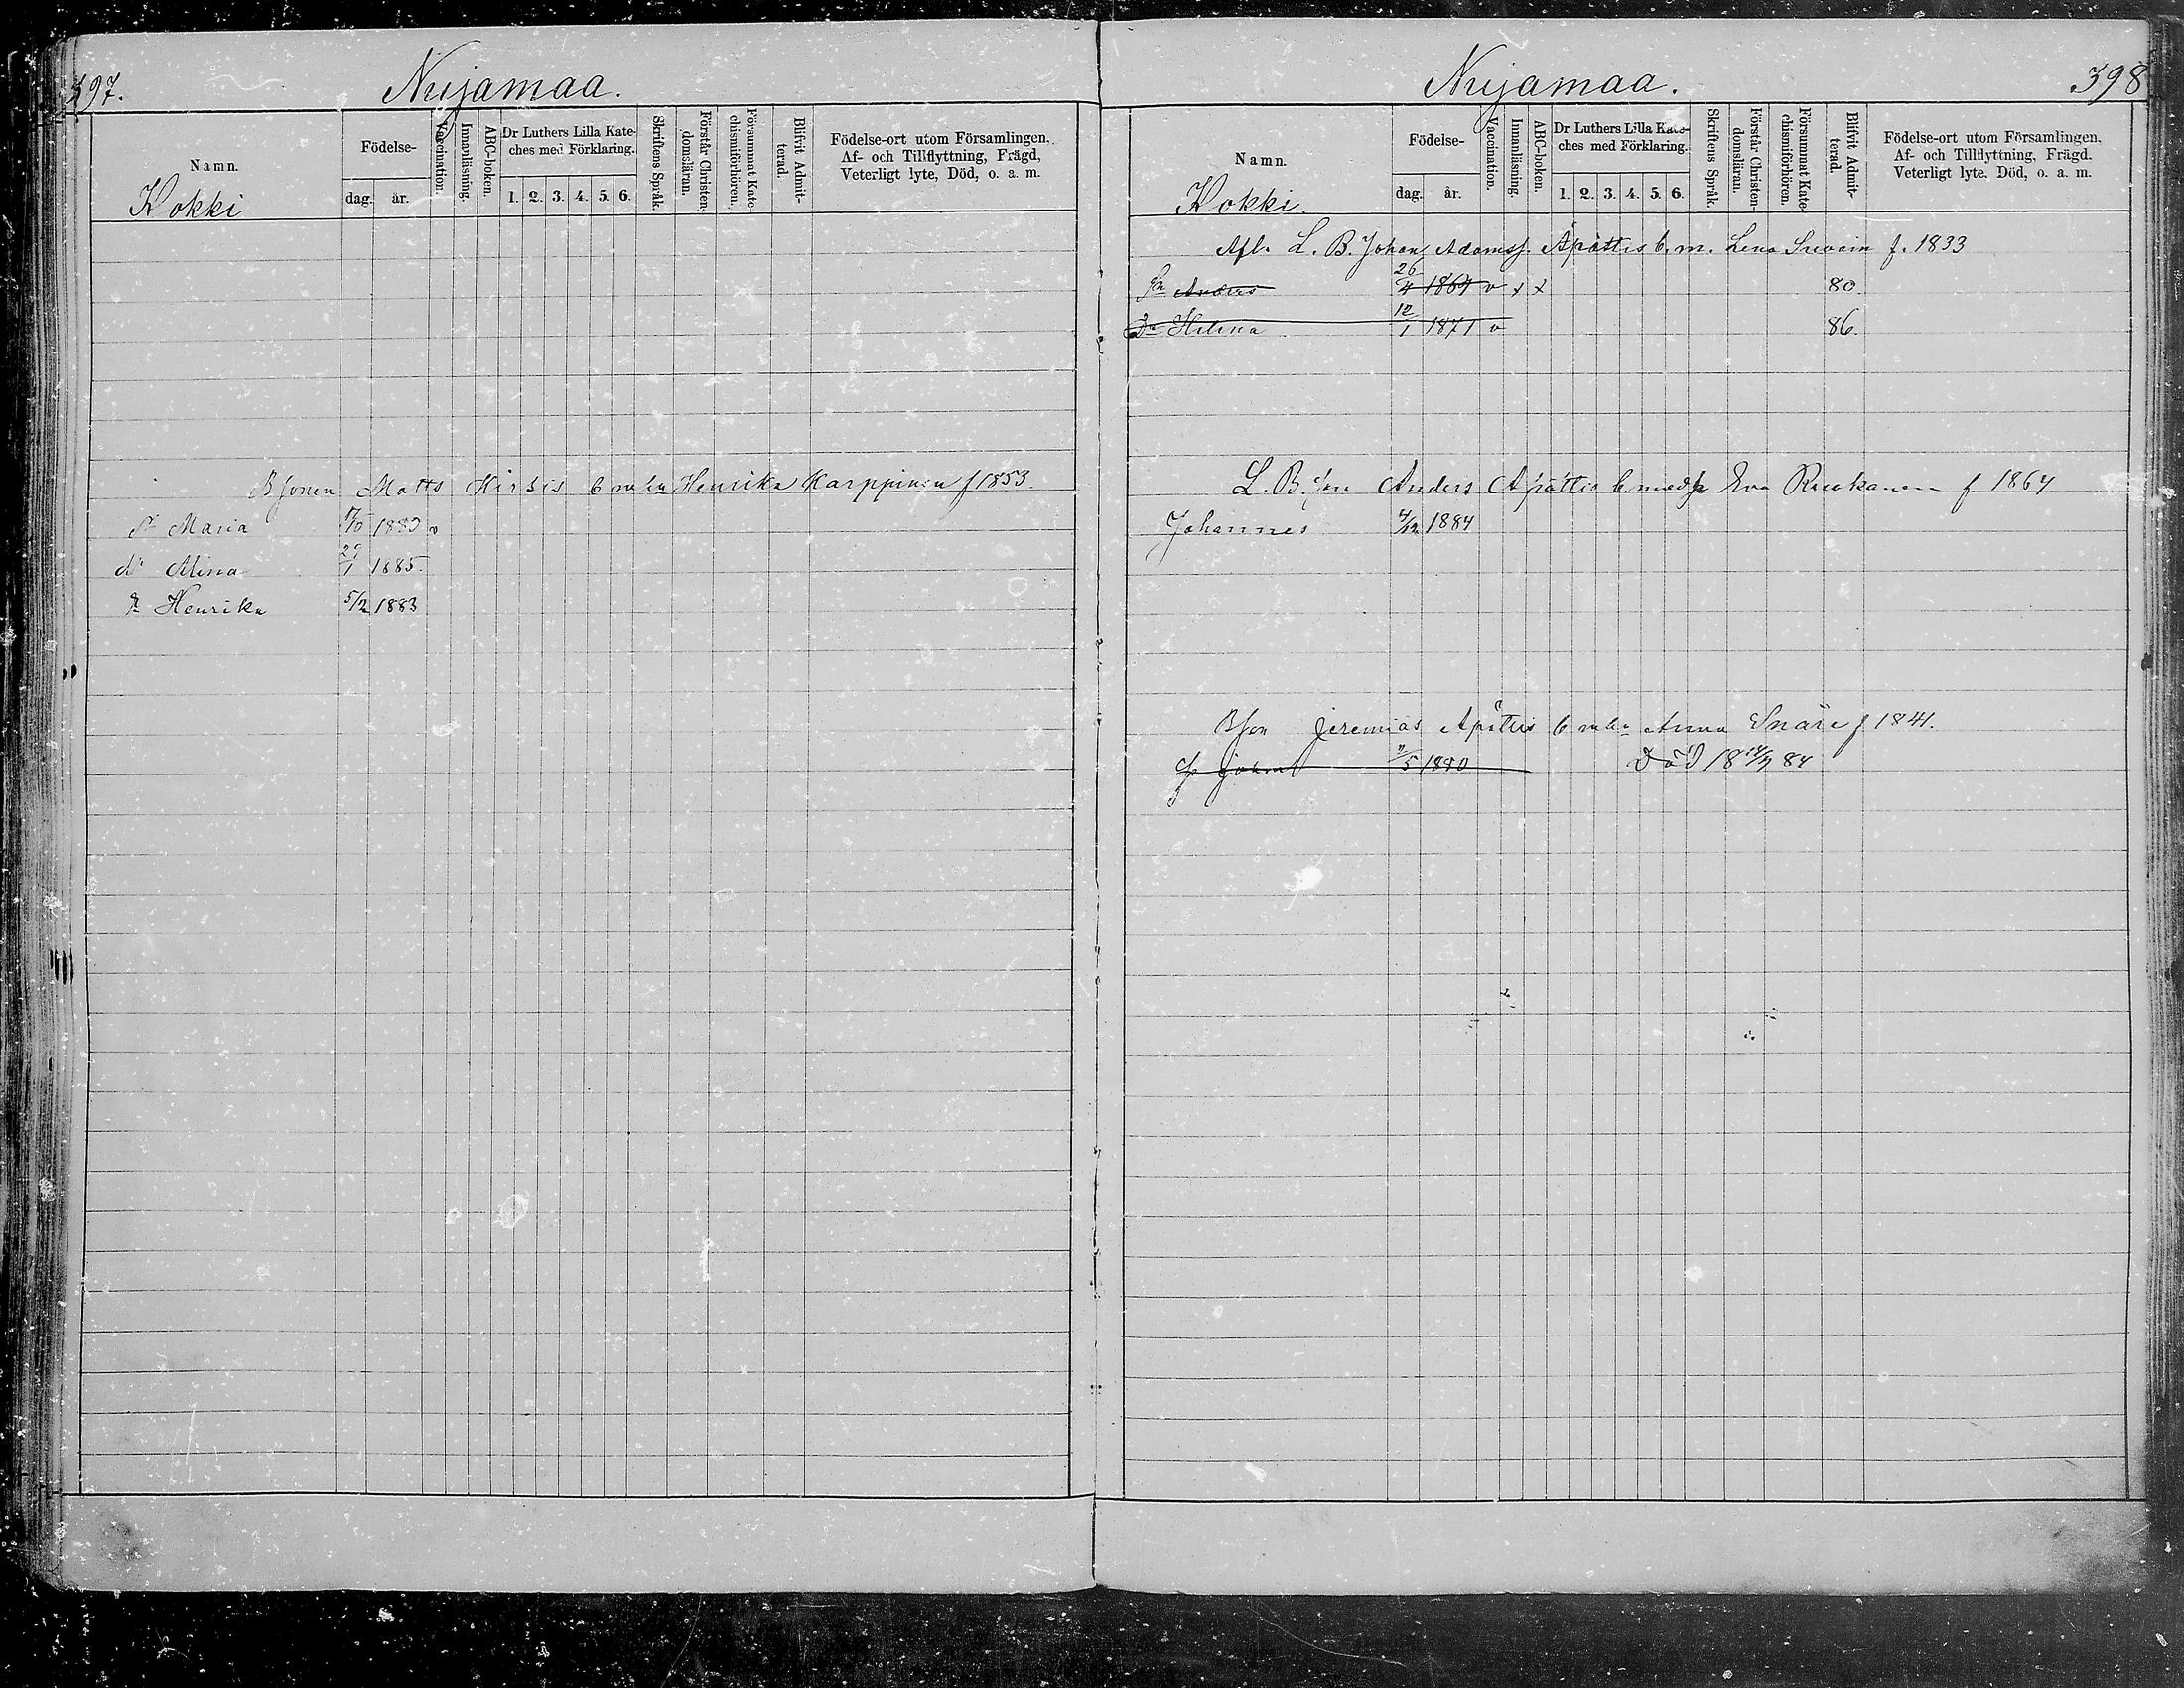 397.
Nuijamaa.
Namn.
Kokki
Födelse-
dag. år.
Vaccination.
Innanläsning.
ABC-boken.
Dr Luthers Lilla Kate-
ches med Förklaring.
1. 2. 3. 4. 5. 6.
Skriftens Språk.
Förstår Christen-
domsläran.
Försummat Kate-
chismiförhören.
Blifvit Admit-
terad.
Födelse-ort utom Församlingen,
Af- och Tillflyttning, Frägd,
Veterligt lyte, Död, o. a. m.
Bsonen Matts Hirsis Henrika Karppinen f 1853.
Maria 1880 v
Mina 29/1 1885.
Henrika 5/2 1883
Nuijamaa.
398
Namn.
Kokki.
Födelse-
dag. år.
Vaccination.
Innanläsning.
ABC-boken.
Dr Luthers Lilla Kate-
ches med Förklaring.
1. 2. 3. 4. 5. 6.
Skriftens Språk.
Förstår Christen-
domsläran.
Försummat Kate-
chismiförhören.
Blifvit Admit-
terad.
Födelse-ort utom Församlingen,
Af- och Tillflyttning, Frägd.
Veterligt lyte. Död, o. a. m.
Afl. L. B. Johan Adamss. Apåttis b. m. Lena f. 1833
Sn Anders 26/4 1864 v x x 80.
Dr Helena 12/1 1871 v 86.
L. B. son Anders Apåttis b. med Eva Ruokanen f 1864
Johannes 4/12 1884
Bson Jeremias Apåttis Anna Snäre f 1841.
Johan 1880 Död 18 14/7 84